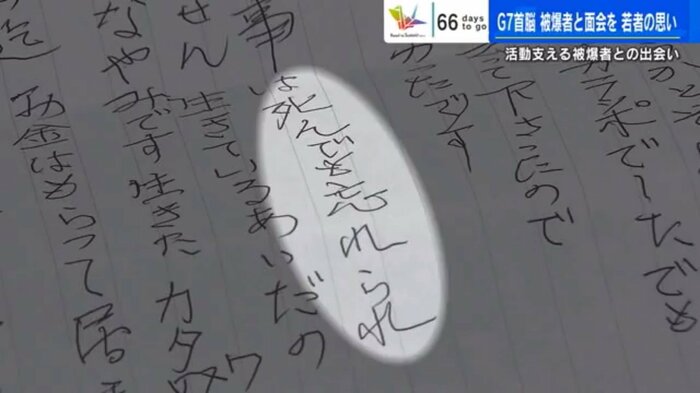 66 days to go
G7首脳 被爆者と面会を 若者の思い
活動支える被爆者との出会い
カラッポでしたでも
て下さったので
たです
事は死んでも忘れられ
せん 生きているあいだの
なやみです生きた カタワ
迄 お金はもらって居